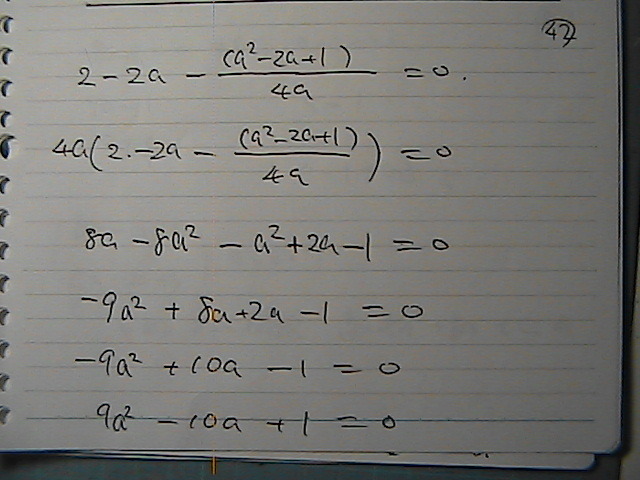 42
2 - 2a - (a² - 2a + 1) / 4a = 0.
4a(2. - 2a - (a² - 2a + 1) / 4a) = 0
8a - 8a² - a² + 2a - 1 = 0
-9a² + 8a + 2a - 1 = 0
-9a² + 10a - 1 = 0
9a² - 10a + 1 = 0